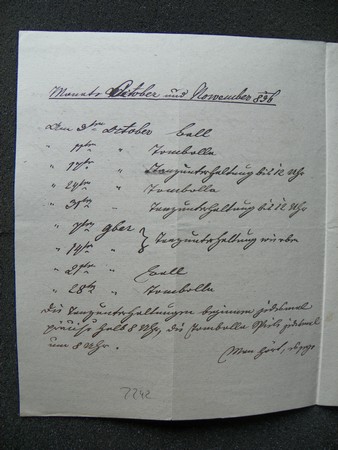 Monate October und November 896
Den 3ten October Ball
" 11ten " Tombolla
" 17ten " Tanzunterhaltung bis 12 Uhr
" 24ten " Tombolla
" 31ten " Tanzunterhaltung bis 12 Uhr
" 7ten 9ber } Tanzunterhaltung wie oben
" 14ten "
" 21ten " Ball
" 28ten " Tombolla
Die Tanzunterhaltungen beginnen jedesmal
präcise halb 8 Uhr, die Tombolla Spiele jedesmal
um 8 Uhr.
7242